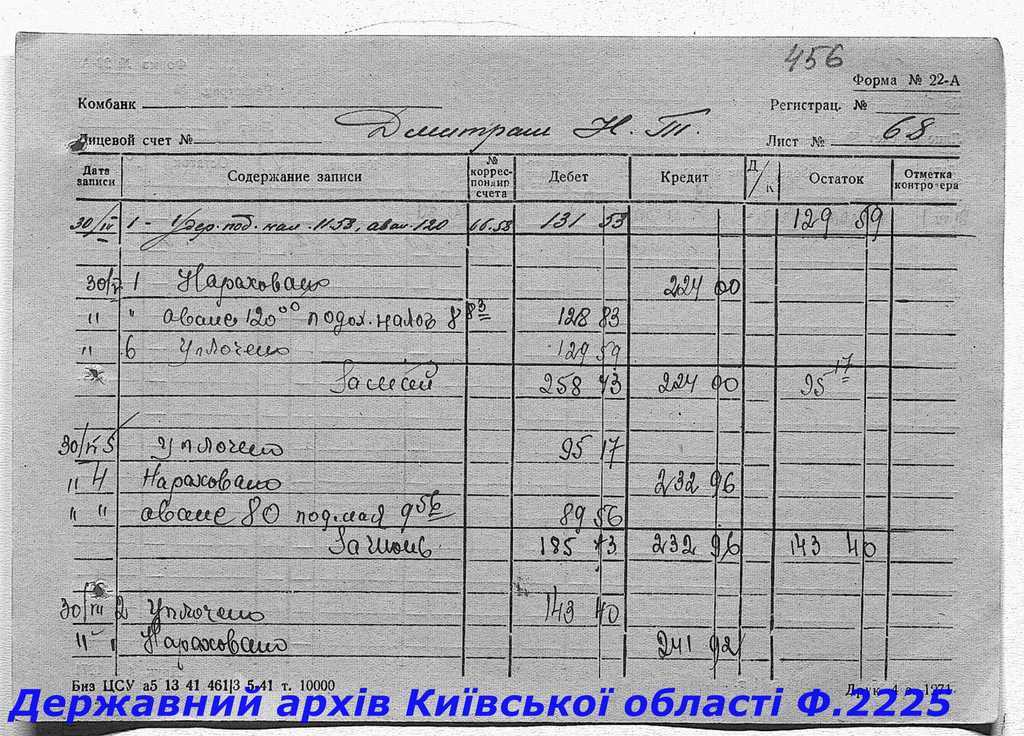 456
Форма № 22-А
Комбанк
Регистрац. №
Лицевой счет № Дмитраш Н. Т.
Лист № 68
Дата записи Содержание записи № коррес-пондир счета Дебет Кредит Д/К Остаток Отметка контролера
30/IV 1 - Удер. под. нал. 11.53, аван. 120 66.53 131 53 129 59
30/V 1 Нараховано 224 00
" " аванс 120 00 подох. налог 8 83 128 83
" 6 Уплочено 129 59
За май 258 73 224 00 95 17
30/VI 5 Уплочено 95 17
" 4 Нараховано 232 96
" " аванс 80 под. 9 56 89 56
За июнь 185 73 232 96 143 40
30/VII 2 Уплочено 143 40
" " Нараховано 241 92
Биз ЦСУ а5 13 41 461|3 5-41 т. 10000
Державний архів Київської області Ф.2225